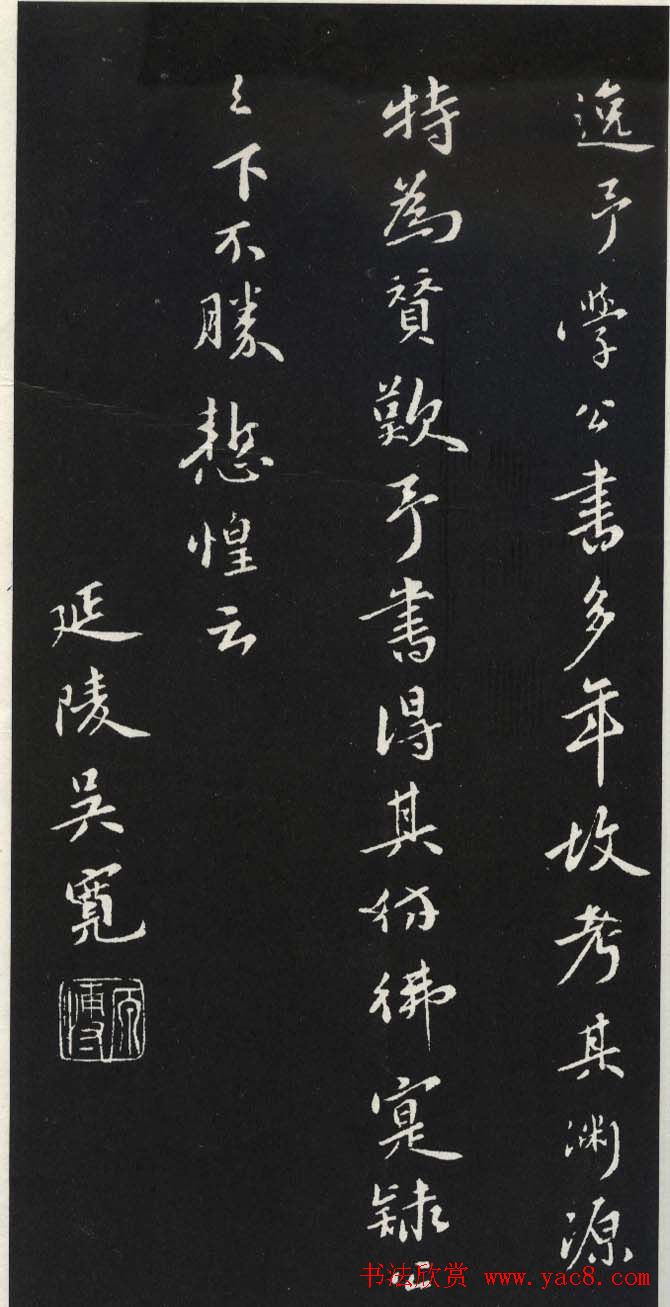 逸予學公書多年故考其渊源
特為贊歎予書得其彷彿寘
之下不勝慙惶云
延陵吳寬
原博
书法欣赏 www.yac8.com